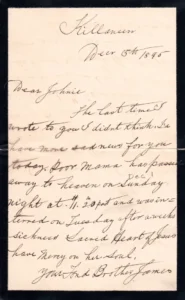 Killanum
Decr 5th 1895
Dear Johnie
The last time I
wrote to you I didnt think Id
have more sad news for you
today. Poor Mama has passed
away to heaven on Sunday
night at 11.30 and was in-
terred on Tuesday after a weeks
sickness Sacred Heart of Jesus
have Mercy on her Soul,
Your Fond Brother James